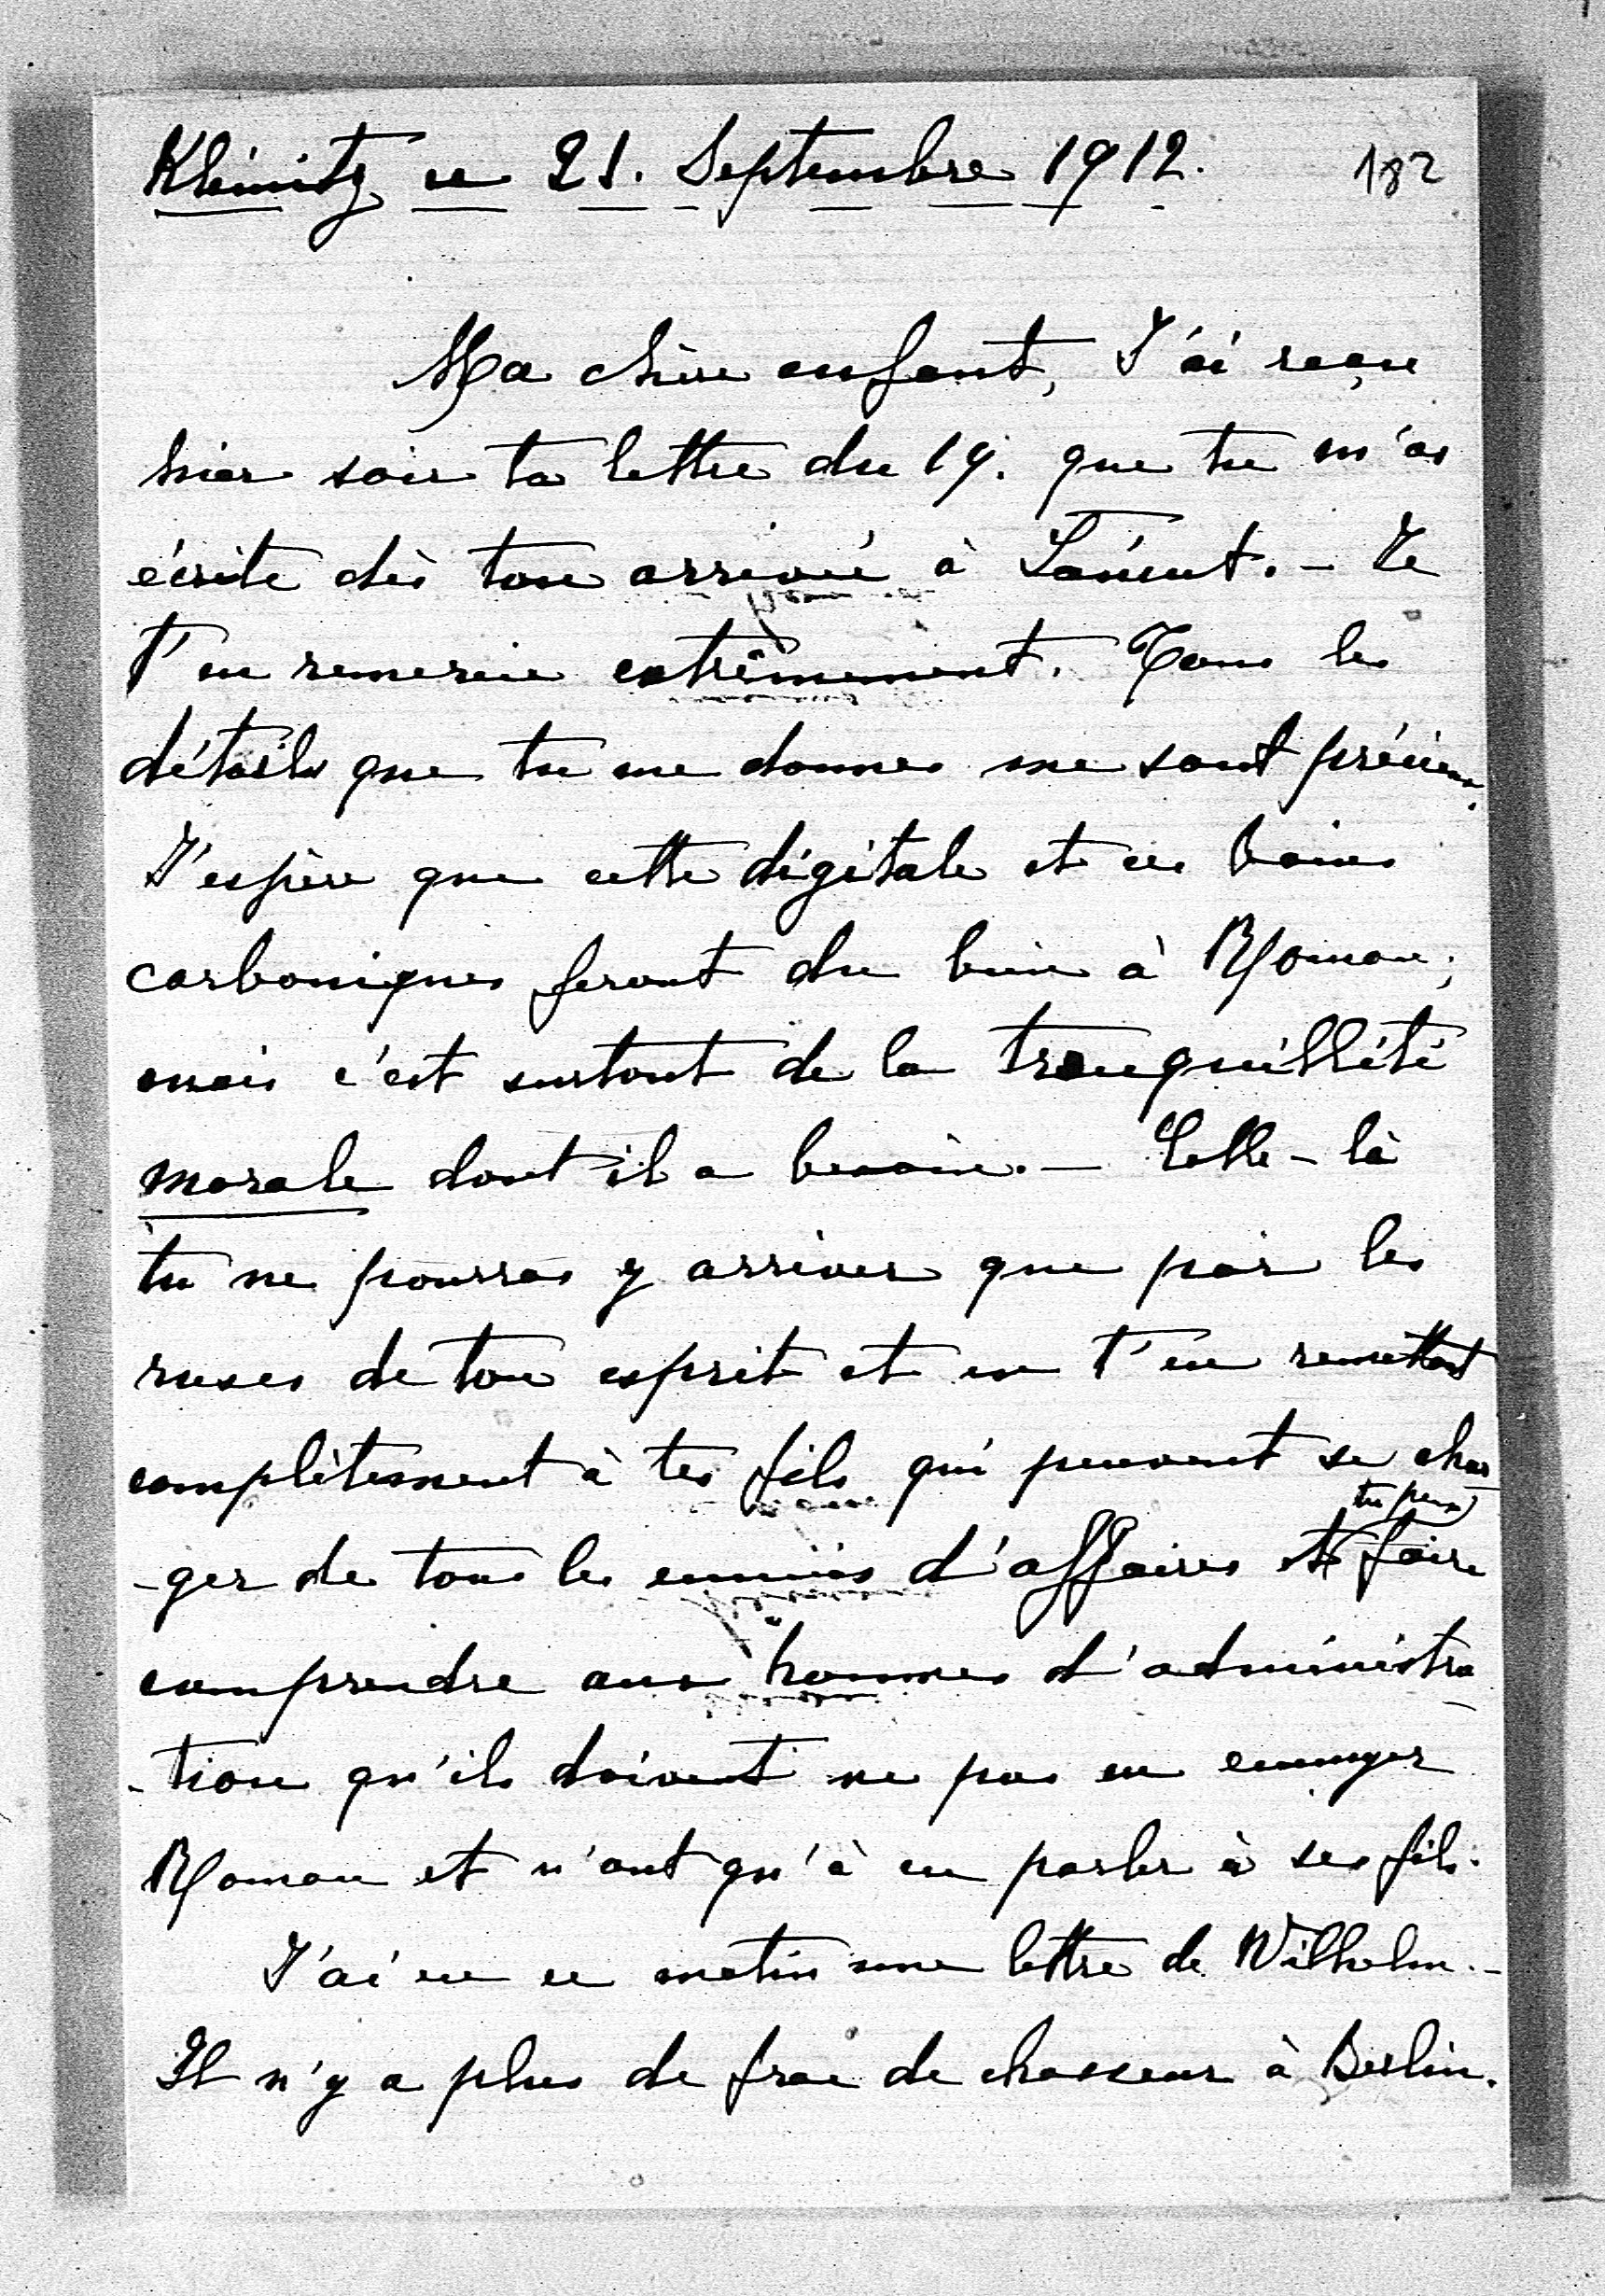 Kleinitz ce 21. Septembre 1912. 182
Ma chère enfant, J'ai reçu
hier soir ta lettre du 19. que tu m'as
écrite dès ton arrivée à Łańcut. – Je
t'en remercie extrêmement. Tous les
détails que tu me donnes me sont précieux.
J'espère que cette digitale et ces bains
carboniques feront du bien à Roman;
mais c'est surtout de la tranquillité
morale dont il a besoin. – Celle-là
tu ne pourras y arriver que par les
ruses de ton esprit et en t'en remettant
complètement à tes fils qui peuvent se char
-ger de tous les ennuis d'affaires et tu peux faire
comprendre aux hommes d'administra
-tion qu'ils doivent ne pas en ennuyer
Roman et n'ont qu'à en parler à ses fils.
J'ai eu ce matin une lettre de Wilhelm. –
Il n'y a plus de frac de chasseur à Berlin.